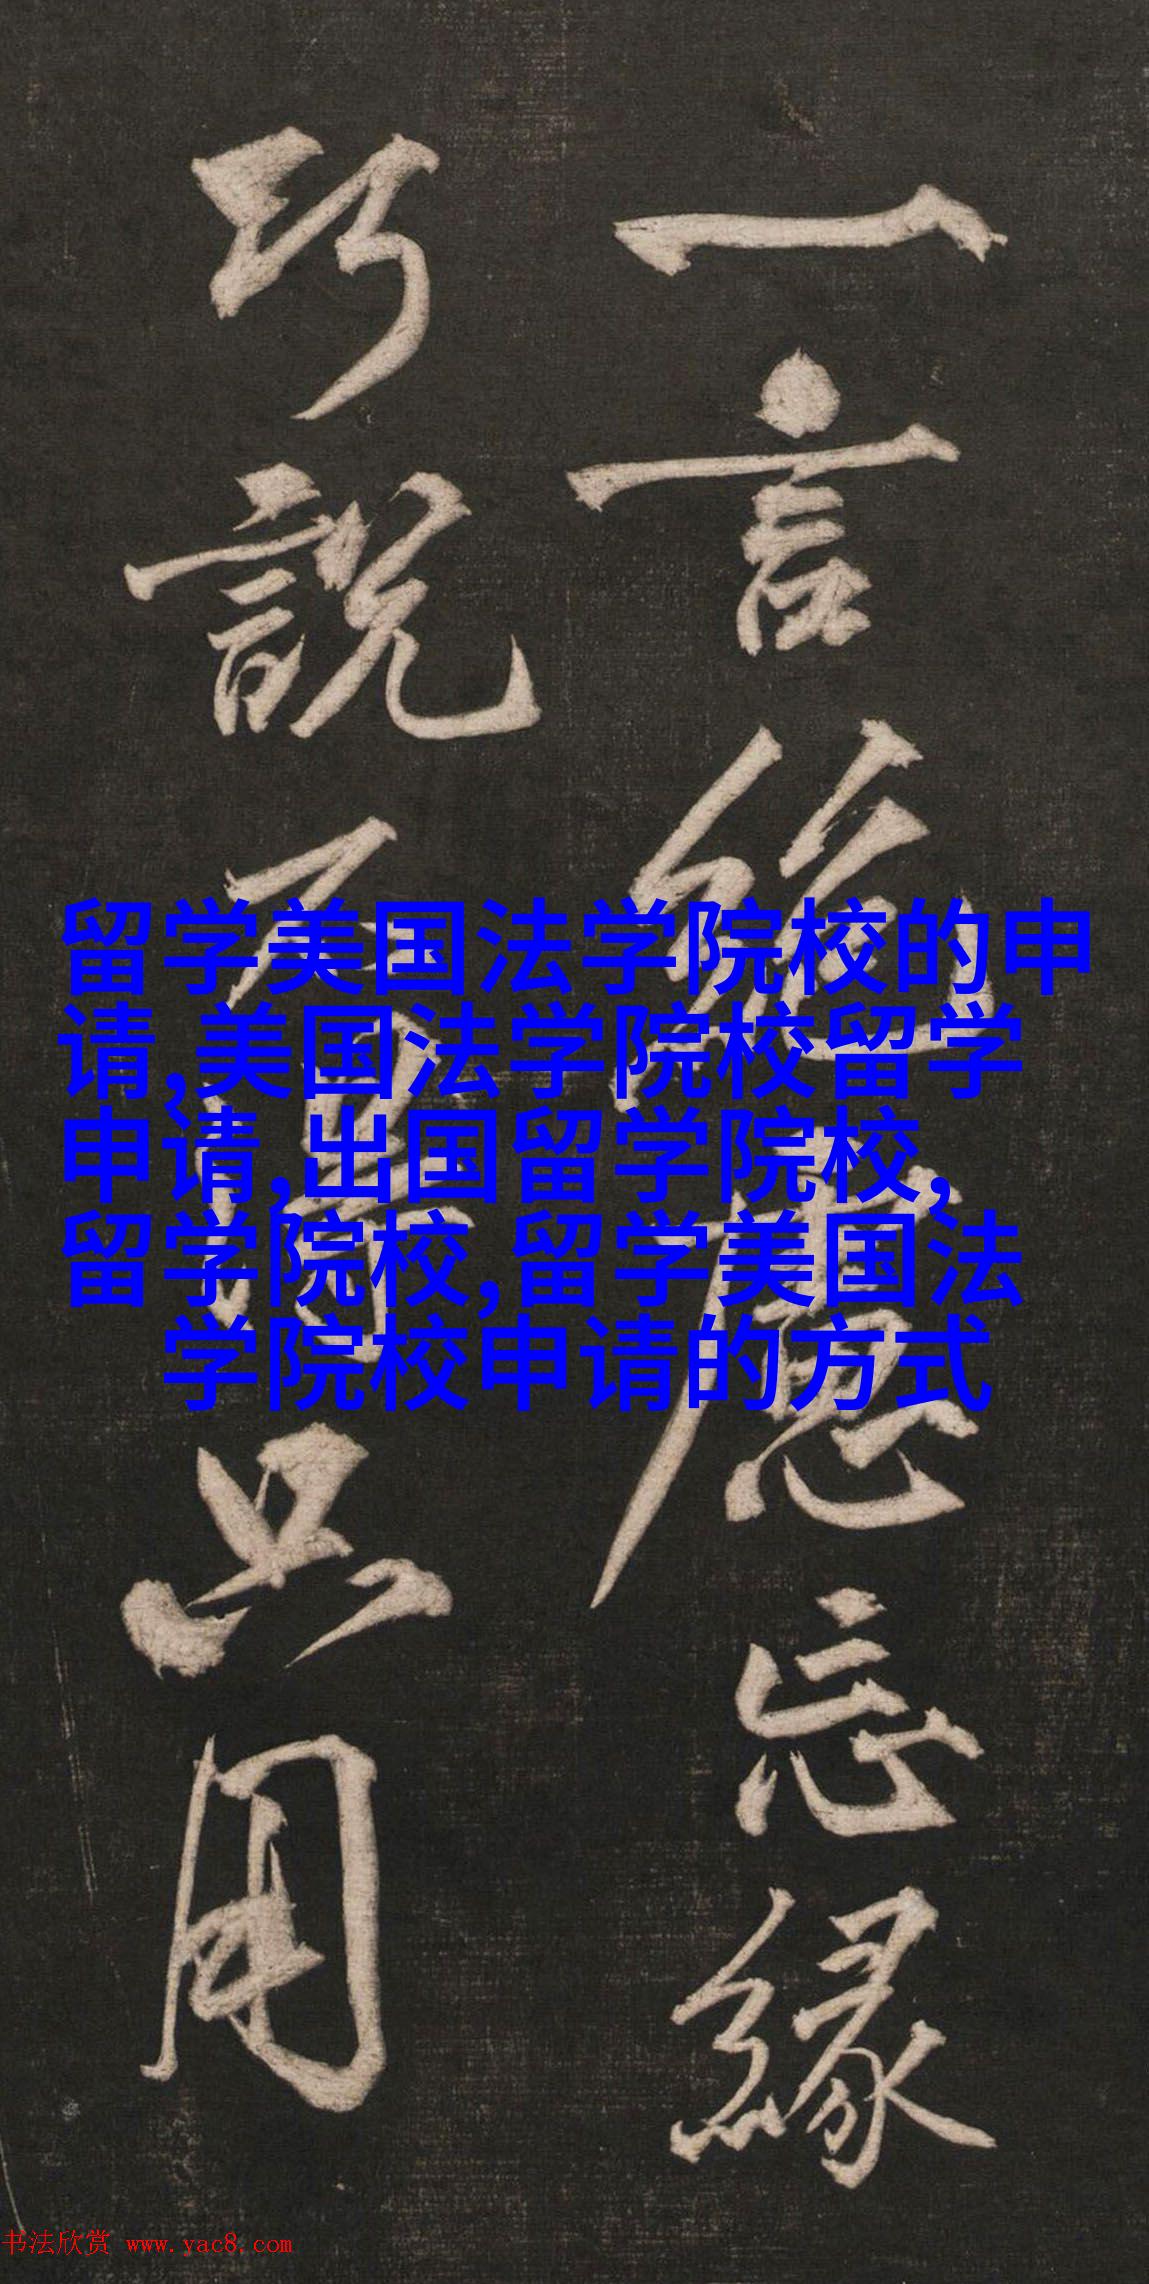 一言絶慮忘緣
巧說不得只用
留学美国法学院校的申
请,美国法学院校留学
申请,出国留学院校,
留学院校,留学美国法
学院校申请的方式
书法欣赏 www.yac8.com